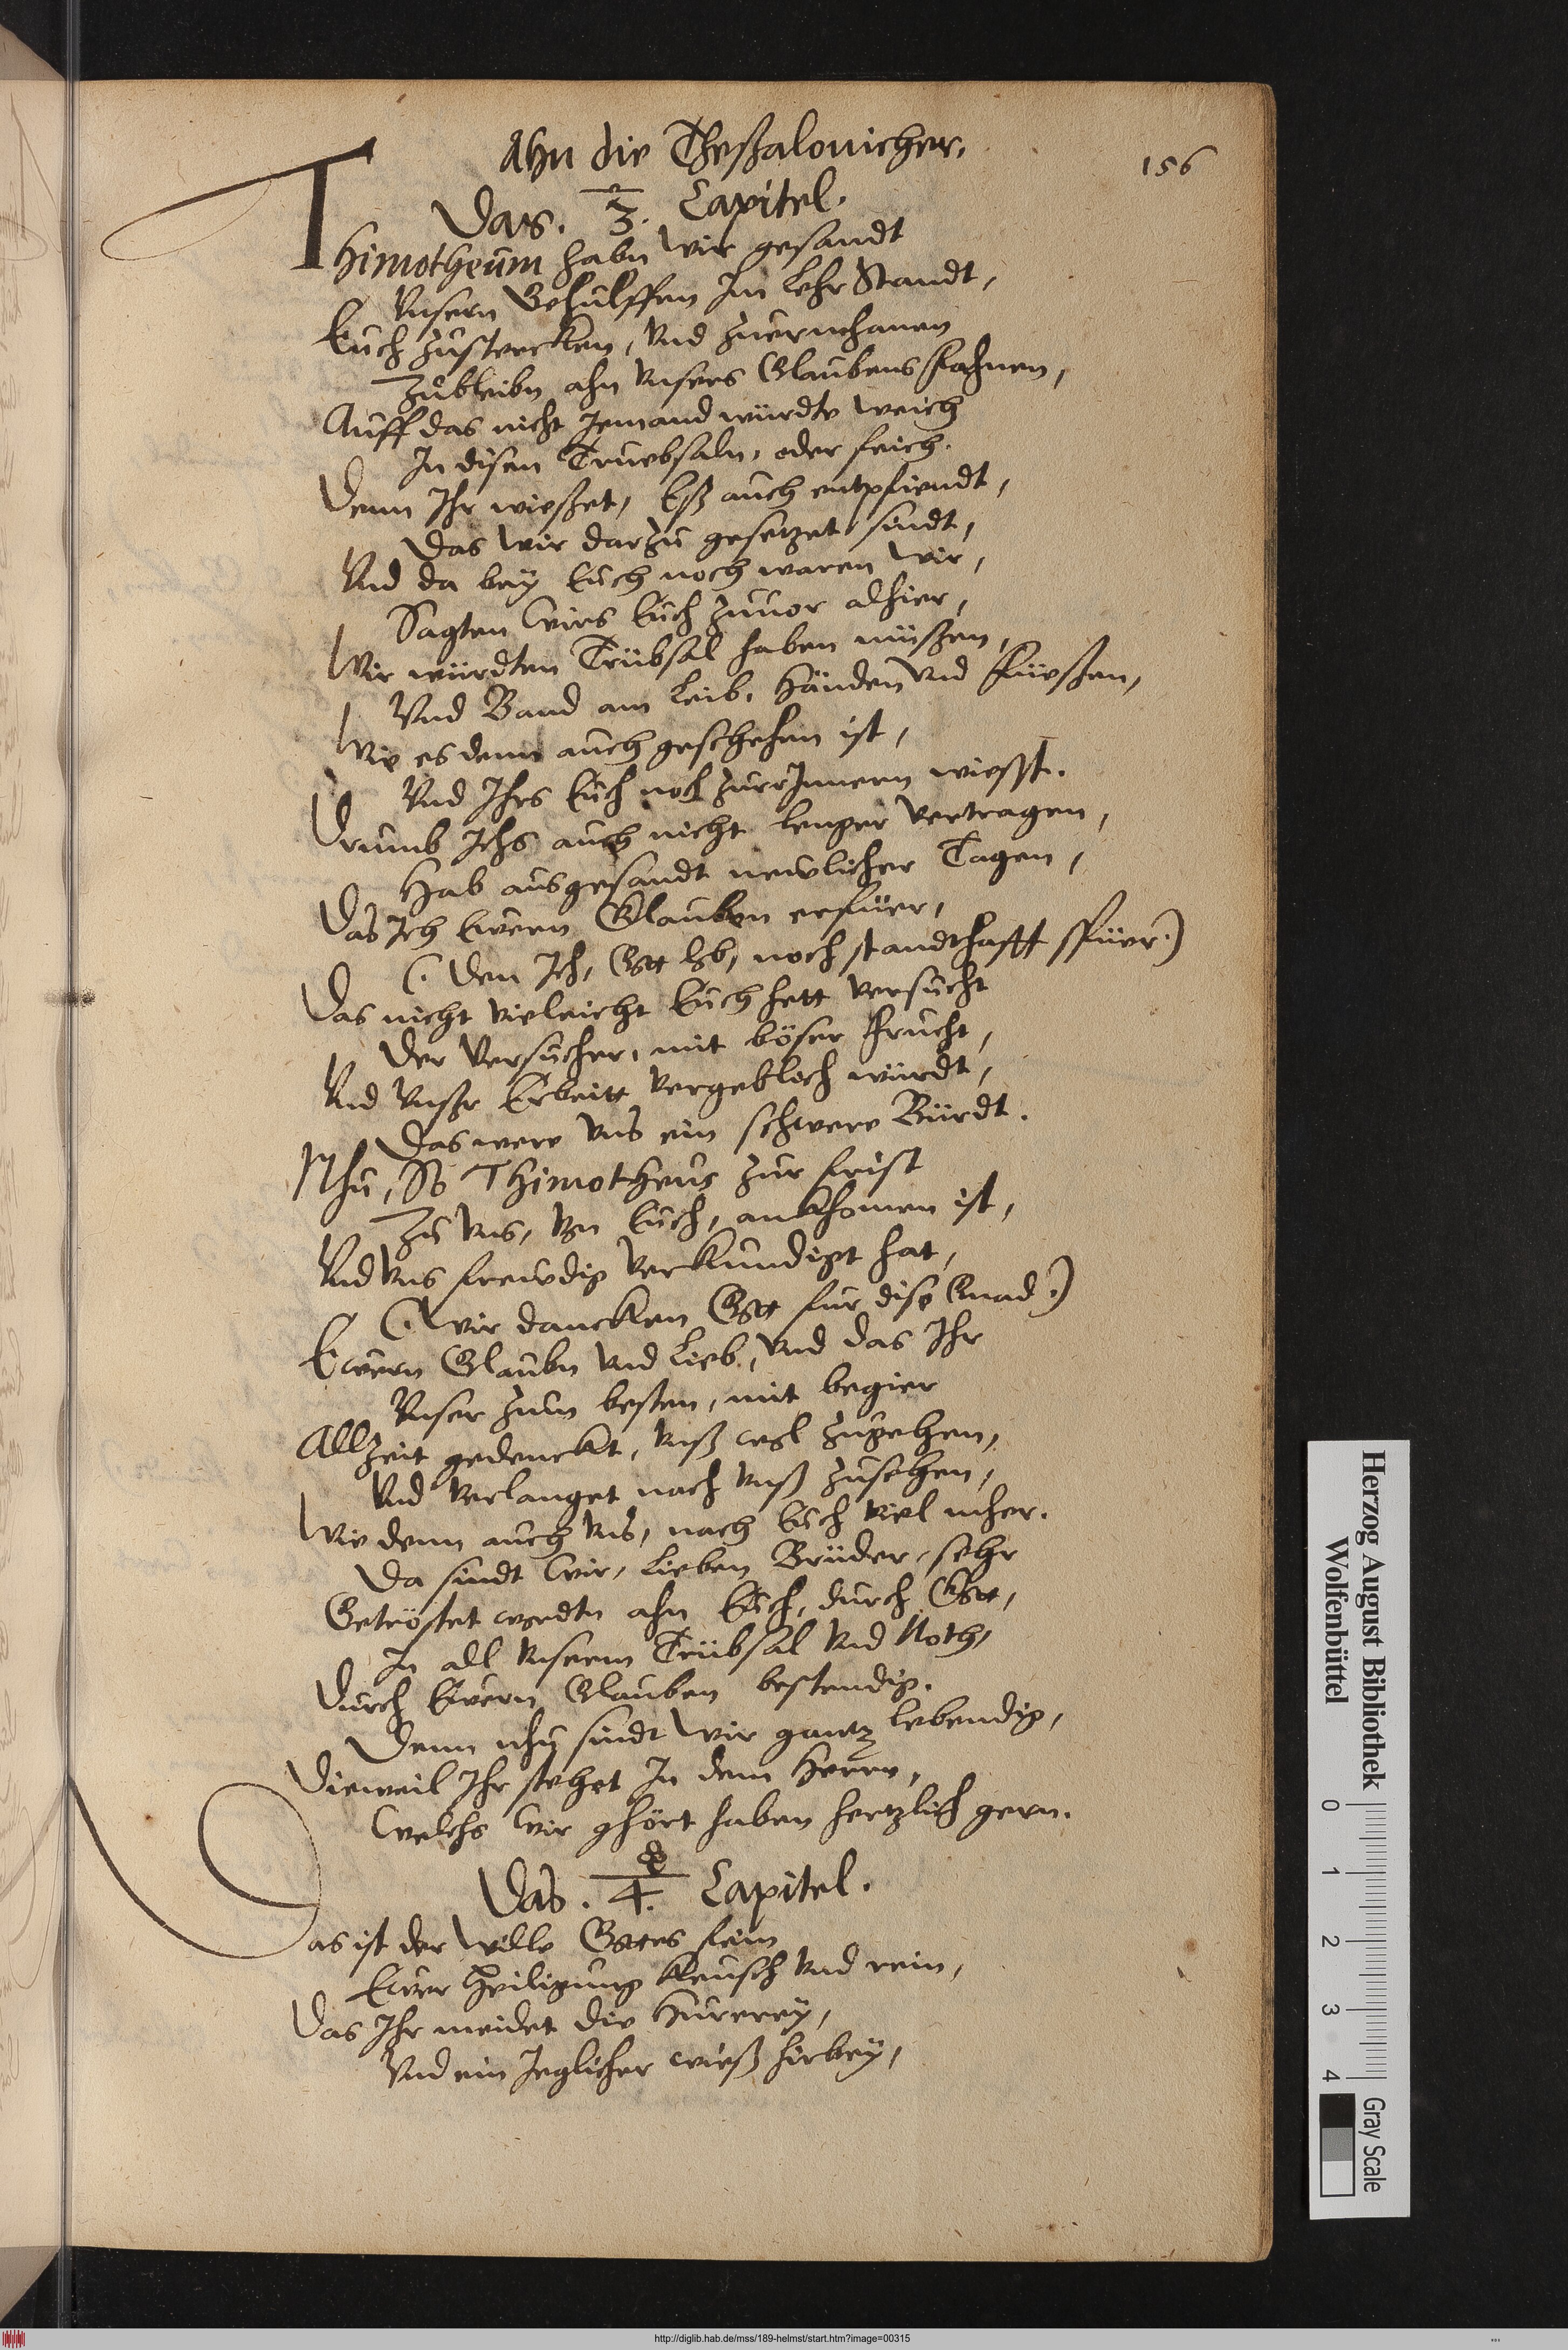 Ahn die Theßalonicher.
156
Das. 3. Capitel.
Thimotheum habn wir gesandt
Vnsern Gehülffen Im Lehr Standt,
Euch zustercken, Vnd zuermhanen
Zubleibn ahn Vnsers Glaubens Fahnen,
Auff das nicht Jemand würdte weich
In disen Truebsaln, oder feich.
Denn Ihr wießet, Eß auch entpfiendt,
Das wir darzu gesetzet sindt,
Vnd da bey Euch noch waren wir,
Sagten wirs Euch zuuor alhier,
Wir würdten Trübsal haben müßen,
Vnd Band am Leib, Händen Vnd Füeßen,
Wie es denn auch geschehen ist,
Vnd Ihrs Euch noch zurJnnern wiesst.
Drumb Ichs auch nicht lenger Vertragen,
Hab ausgesandt newlicher Tagen,
Das Ich Ewern Glauben erfüer,
(. Den Ich, Gott lob, noch standthafft spüer.)
Das nicht Vieleicht Euch hett Versucht
Der Versucher, mit böser Frucht,
Vnd Vnßr Erbeitt Vergeblich würdt,
Das were Vns ein schwere Bürdt.
Nhu, So Thimotheus zur frist
Zu Vns, Von Euch, ankhomen ist,
Vnd Vns frewdig Verkundigt hat,
(. Wir dancken Gott für dise Gnad.)
Ewern Glaubn Vnd Lieb, Vnd das Ihr
Vnser zum besten, mit begier
Allzeit gedenckt, Vnß wol zugehen,
Vnd Verlanget nach Vnß zusehen,
Wie denn auch Vns, nach Euch Viel mher.
Da sindt wir, Lieben Brüder, sehr
Getröstet wordtn ahn Euch, durch Gott,
In all Vnserm Trübsal Vnd Noth,
Durch Ewern Glauben bestendig.
Denn nhu sindt wir gantz lebendig,
Dieweil Ihr stehet In dem Herrn,
Welchs wir ghört haben hertzlich gern.
Das. 4. Capitel.
Das ist der Wille Gottes fein
Ewer Heiligung Keusch Vnd rein,
Das Ihr meidet die Hurerey,
Vnd ein Jeglicher wieß hirbey,
Herzog August Bibliothek
Wolfenbüttel
0 1 2 3 4
Gray Scale
http://diglib.hab.de/mss/189-helmst/start.htm?image=00315